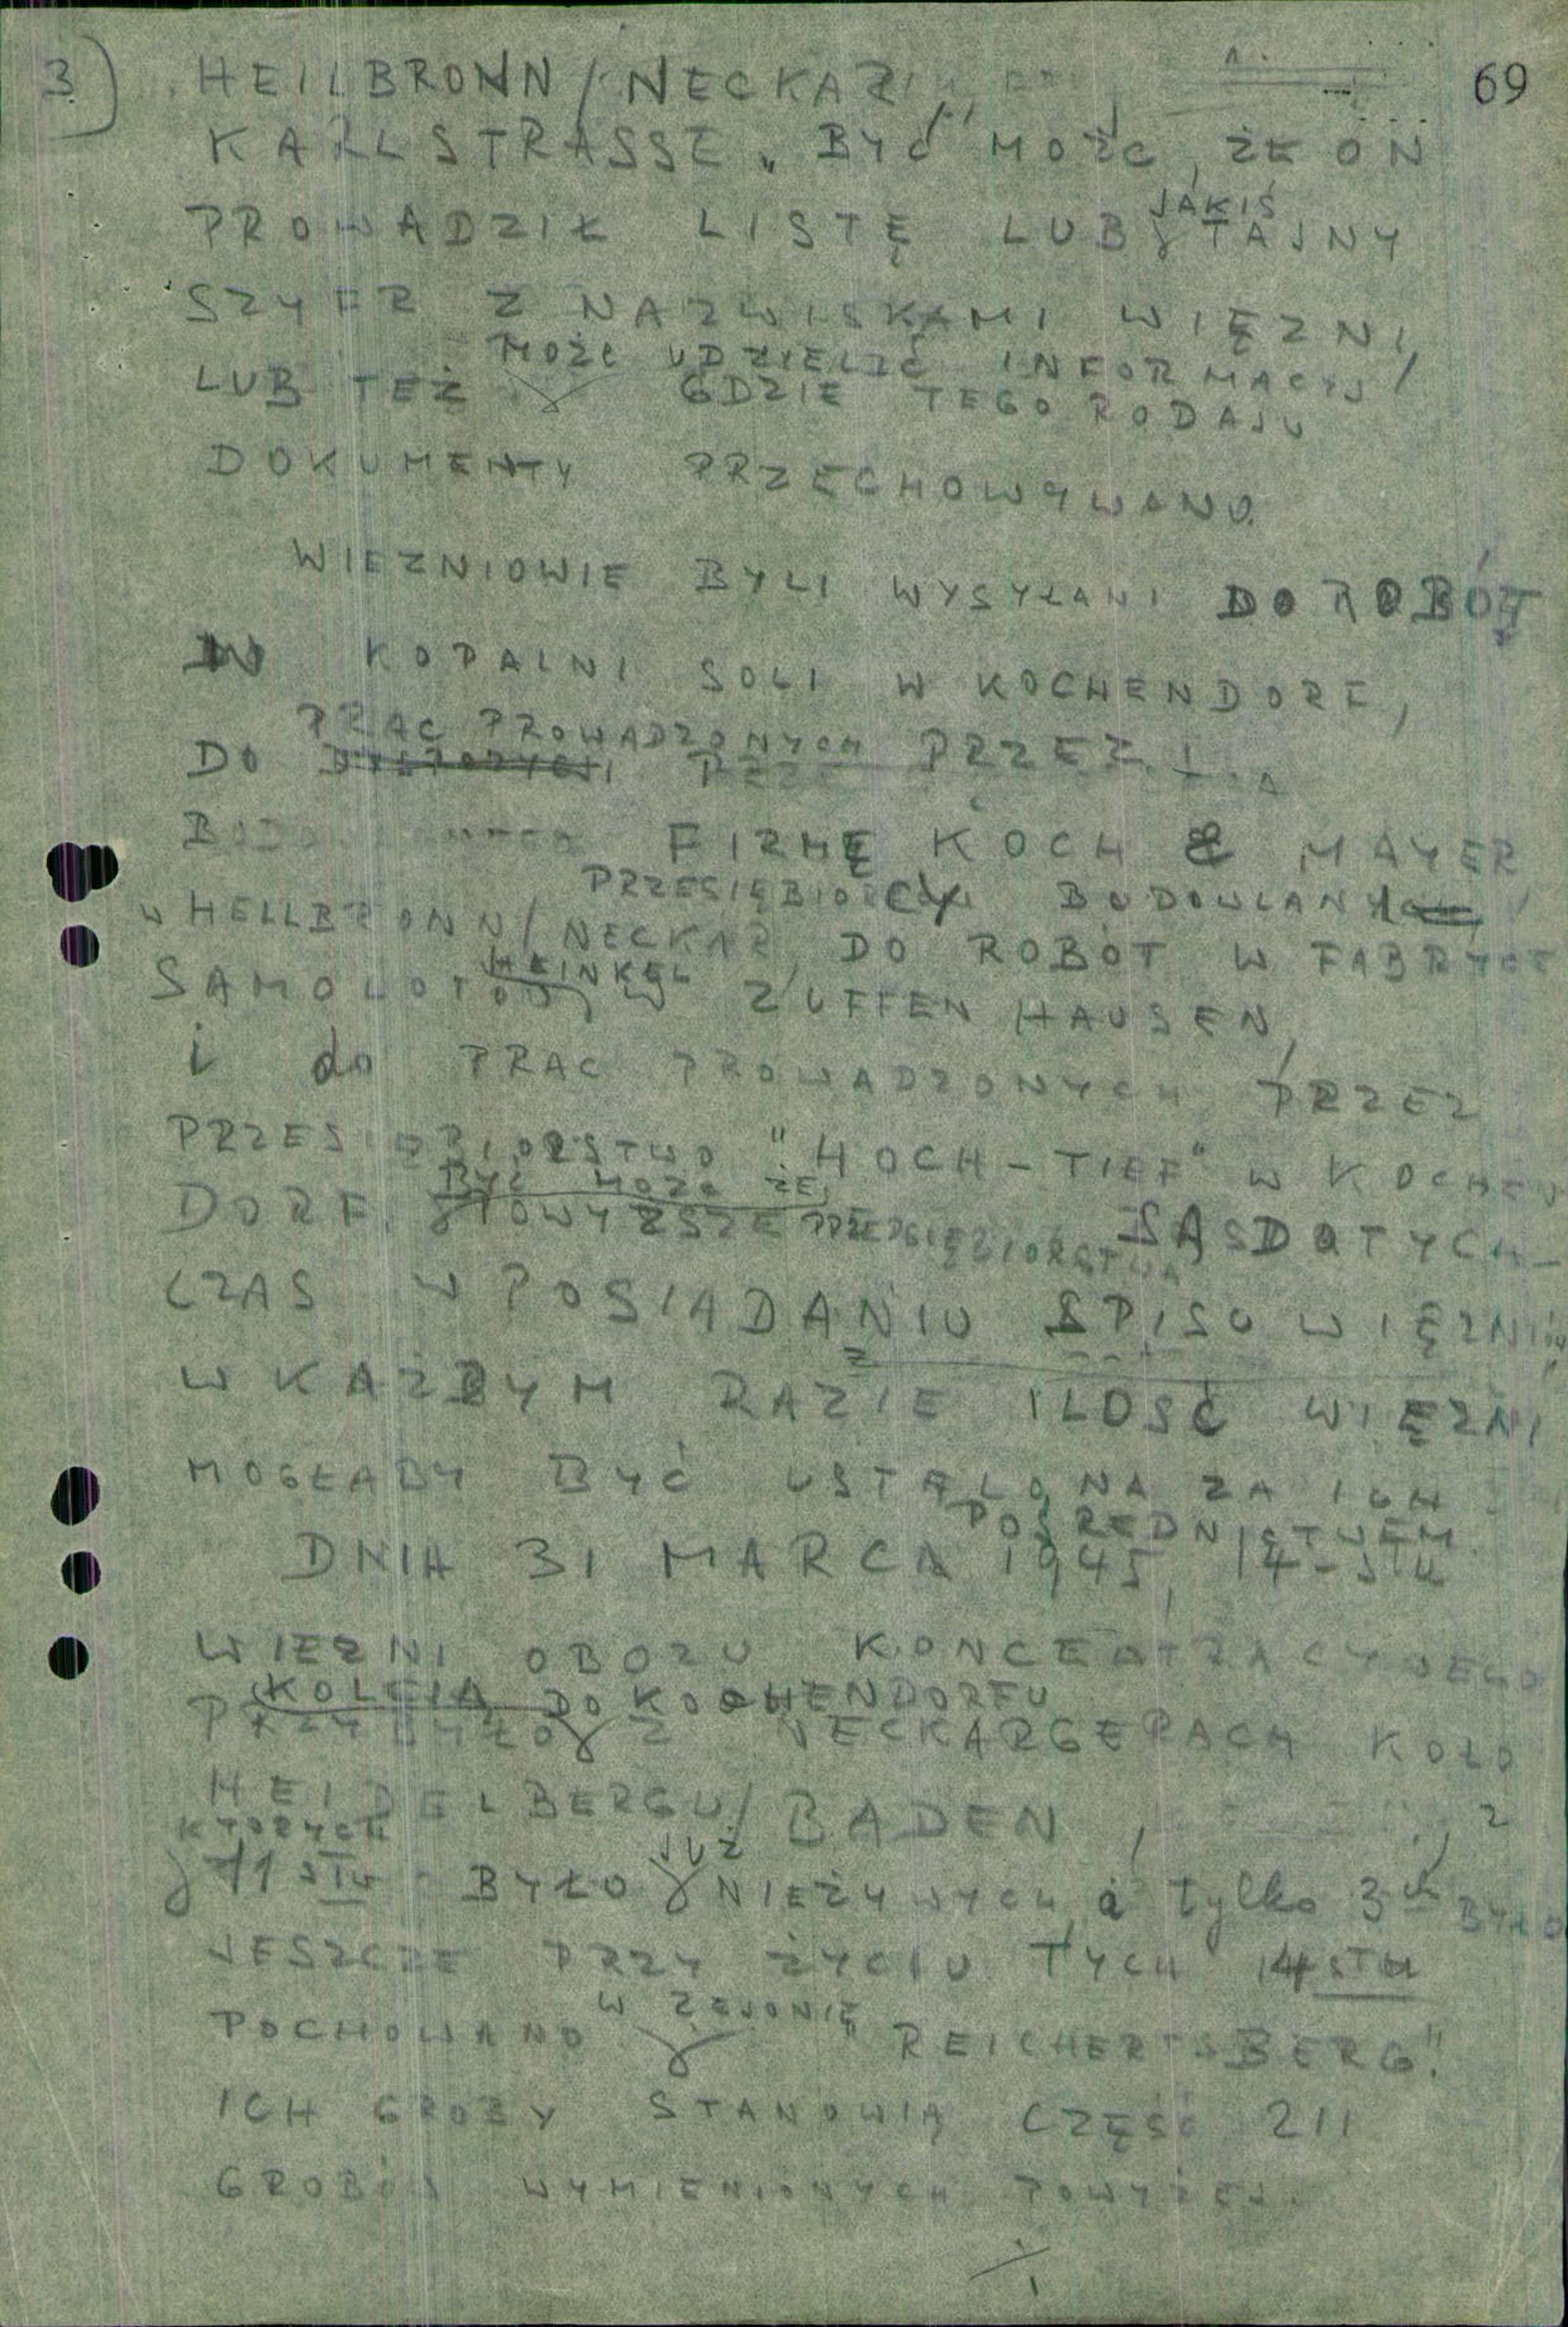 3) HEILBRONN/NECKAR 69
KARLSTRASSE. BYĆ MOŻE, ŻE ON
JAKIŚ
PROWADZIŁ LISTĘ LUB TAJNY
SZYFR Z NAZWISKAMI WIĘZNI,
MOŻE UDZIELIĆ INFORMACYJ
LUB TEŻ GDZIE TEGO RODAJU
DOKUMENTY PRZECHOWYWANO.
WIEZNIOWIE BYLI WYSYŁANI DO ROBÓT
W KOPALNI SOLI W KOCHENDORF,
PRAC PROWADZONYCH
DO PRZEZ
FIRMĘ KOCH & MAYER
PRZESIĘBIORCY BUDOWLANY
W HEILBRONN/NECKAR, DO ROBÓT W FABRYCE
HEINKEL
SAMOLOTÓW W ZUFFENHAUSEN,
i do PRAC PROWADZONYCH PRZEZ
PRZESIĘBIORSTWO "HOCH-TIEF" W KOCHEN
BYĆ MOŻE ŻE
DORF. POWYZSZE PRZEDSIĘBIORSTWA SĄ DOTYCH-
CZAS W POSIADANIU SPISU WIĘZNI
W KAŻDYM RAZIE ILOSĆ WIĘZNI
MOGŁABY BYĆ USTALONA ZA ICH
POŚREDNICTWEM.
DNIA 31 MARCA 1945, 14-STU
WIEZNI OBOZU KONCENTRACYJNEGO
KOLEJĄ DO KOCHENDORFU
PRZYBYŁO Z NECKARGERACH KOŁO
HEIDELBERGU/BADEN, Z
KTORYCH JUŻ
11 STU BYŁO NIEŻYWYCH a tylko 3ch BYŁO
JESZCZE PRZY ŻYCIU TYCH 14 STU
W REJONIE
POCHOWANO "REICHERTSBERG".
ICH GROBY STANOWIĄ CZĘŚĆ 211
GROBÓW WYMIENIONYCH POWYŻEJ.